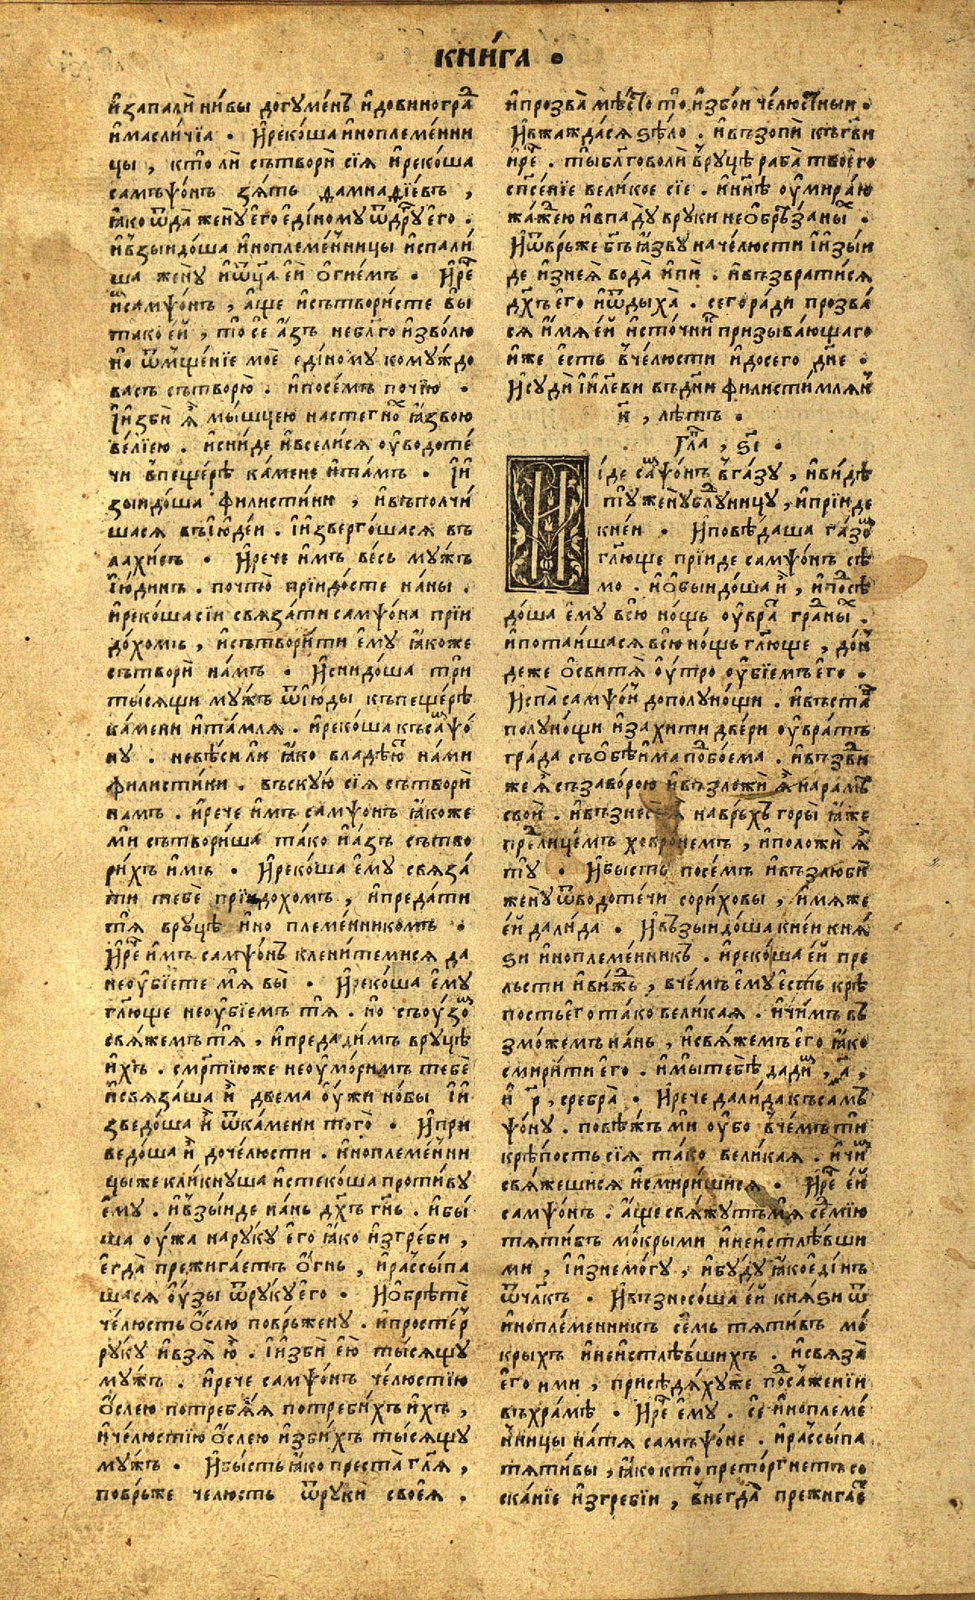 КНИ́ГА .
и҆запалѝ ни́вы догꙋме́нъ и҆довиногра́
и҆масли́чїа . И҆реко́ша и҆ноплеме́нни
цы , кто̀ лѝ сътворѝ сїѧ̀ и҆реко́ша
самъѱо́нъ зѧ́ть дамнадїевъ ,
ꙗ҆ко ѿда̀ женꙋ̀ его̀ еди́номꙋ ѿдрꙋ́ е҆го .
и҆възыидо́ша и҆ноплеме́нницы и҆спали́
ша женꙋ̀ и҆ѿца̀ е҆ѝ о҆гне́мъ . И҆ре
и҆самѱо́нъ , а҆ще и҆сътвори́сте вы̀
тако е҆ѝ , то се а҆зъ не бл҃го и҆зво́лю
но ѿмще́нїе моѐ еди́номꙋ комꙋ́ждо
васъ сътворю̀ . и҆посе́мъ почїю̀ .
И҆избѝ ѧ҆̀ мы́шцею настегно̀ ꙗ҆звою
ве́лїею . и҆сни́де и҆всели́сѧ ᲂу҆водоте́
чи въпеще́рѣ ка́мене и҆та́мъ . И҆и
зыидо́ша филисти́ни , и҆въполчи́
шасѧ въїю҆де́и . І҆изверго́шасѧ въ
лахи́сѣ . И҆рече и҆мъ весь мꙋжъ
їю҆динъ . почто̀ прїидо́сте на́ны .
и҆реко́ша сїи свѧза́ти самѱо́на прїи
до́хомъ , и҆сътвори́ти е҆мꙋ̀ ꙗ҆коже
сътворѝ на́мъ . И҆снидо́ша трѝ
ты́сѧщи мꙋжъ ѿїю҆ды къпеще́рѣ
ка́мени и҆та́млѧ . и҆реко́ша къса́ѱо́
нꙋ . невѣ́си ли ꙗ҆ко владѣ́ю на́ми
филисти́ни . въскꙋ́ю сїѧ сътворѝ
намъ . и҆рече и҆мъ самѱонъ ꙗ҆коже
мѝ сътвори́ша тако и҆а҆зъ сътво
ри́хъ и҆мъ . И҆реко́ша е҆мꙋ̀ свѧза́
ти тебѐ прїидо́хомъ , и҆преда́ти
тѧ̀ врꙋцѣ̀ и҆но племе́нникомъ .
И҆ре́ и҆мъ самѱо́нъ клени́темисѧ да
неᲂу҆бїете мѧ̀ вы̀ . И҆реко́ша е҆мꙋ̀
гл҃юще неᲂу҆бїемъ тѧ̀ . но съᲂу҆́зо
свѧ́жемъ тѧ̀ , и҆предадимъ врꙋцѣ̀
и҆хъ . сме҃ртїюже неᲂу҆мо́римъ тебѐ
и҆свѧза́ша и҆̀ двема ᲂу҆́жи но́вы І҆и
зведо́ша и҆̀ ѿка́мени того̀ . И҆при
ведо́ша и҆̀ доче́люсти . и҆ноплеме́нни
цы же кли́кнꙋша и҆стеко́ша проти́вꙋ
е҆мꙋ̀ . и҆взы́иде на́нь дх҃ъ гн҃ь . и҆бы́
ша ᲂу҆́жа нарꙋ́кꙋ его̀ ꙗ҆ко и҆згре́би ,
егда̀ прежига́етъ о҆гнь , и҆рассы́па
шасѧ ᲂу҆́зы ѿрꙋкꙋ̀ его̀ . И҆ѡбрѣтѐ
че́люсть о҆слю пове́рьженꙋ . и҆просте́р
рꙋкꙋ и҆взѧ̀ ю҆̀ . І҆избѝ е҆ю ты́сѧщꙋ
мꙋжъ . и҆рече самѱо́нъ че́люстїю
о҆слею потреблѧ́ѧ потреби́хъ и҆хъ ,
и҆че́люстїю о҆слею и҆зби́хъ ты́сѧщꙋ
мꙋжъ . И҆бысть ꙗ҆ко преста̀ гл҃ѧ ,
побрьже челюсть ѿрꙋки своеѧ̀ .
и҆прозва̀ мѣ́сто то̀ и҆збо́и че́люстныи .
И҆вжажда́сѧ ѕѣло . и҆възопѝ къгв҃и
и҆ре́ . ты бл҃говолѝ въ рꙋцѣ раба̀ твоего
сп҃се́нїе вели́кое сїе . и҆нн҃ѣ ᲂу҆мира́ю
жа́жею и҆впа́дꙋ врꙋки необрѣ́заны .
И҆ѿвръже бг҃ъ ꙗ҆звꙋ начелюсти І҆изы́и
де и҆знеѧ̀ вода̀ и҆пѝ . и҆възврати́сѧ
дх҃ъ его и҆ѿдыха̀ . сегора́ди прозва́
сѧ и҆мѧ е҆й и҆сто́чни призыва́ющаго
и҆же е҆сть въче́люсти и҆досего дн҃е .
И҆сꙋдѝ і҆и҃леви въдн҃и филисти́млѧн
к҃ , лѣтъ .
Гла , ѕ҃і .
Иде самѱо́нъ вга́зꙋ , и҆ви́дѣ
тꙋ̀ женꙋ̀ блꙋдницꙋ , и҆прїиде
кнеи . И҆повѣ́даша газо
гл҃юще прїиде самѱо́нъ сѣ
мо . и҆ѡбыидо́ша и҆̀ , и҆посѣ
до́ша е҆мꙋ̀ всю̀ нощь ᲂу҆вра гра́ны .
и҆потаи́шасѧ всю̀ но́щь гл҃юще , до́н
деже о҆свитѧ̀ ᲂу҆тро ᲂу҆бїемъ е҆го .
И҆спа̀ самѱо́н дополꙋно́щи . и҆въста̀
полꙋно́щи и҆захити две́ри ᲂу҆вратъ
гра́да съѻбѣи́ма побо́ема . и҆възве
же ѧ҆̀ съзаво́рою и҆възложѝ ѧ҆̀ нарамѣ
свои . и҆възнесѐ ѧ҆̀ навръхъ горы̀ ꙗ҆же
прѐлице́мъ хевро́немъ , и҆положѝ ѧ҆̀
тꙋ̀ . И҆бысть посе́мъ и҆възлюбѝ
женꙋ̀ ѿводоте́чи сори́ховы , и҆мѧже
е҆й дали́да . И҆възыидо́ша кнеи кнѧ
ѕи и҆ноплеме́нникъ . и҆реко́ша е҆й пре
льсти и҆ви́жь , вчемъ е҆мꙋ е҆сть крѣ
пость его та́ко великаѧ . и҆чи́мъ въ
змо́жемъ на́нь , и҆свѧ́жемъ его ꙗ҆ко
смири́ти его . и҆мы тебѣ дади , а҃ ,
и҆ р҃ , сребра̀ . И҆рече дали́да къ самъ
ѱо́нꙋ . повѣ́жь ми ᲂу҆бо вчемъ ти
крѣ́пость сїѧ та́ко вели́каѧ . и҆чи
свѧ́жешисѧ и҆смири́шисѧ . И҆ре е҆й
самѱо́нъ . а҆ще свѧ́жꙋтъ мѧ се́мїю
тѧти́въ мо́крыми и҆неистлѣ́вши
ми , І҆изнемо́гꙋ , и҆бꙋдꙋ̀ ꙗ҆ко еди́нъ
ѿчлкъ . И҆възнесо́ша е҆й кнѧ́ѕи ѿ
и҆ноплеме́нникъ се́мь тѧти́въ мо́
крыхъ и҆неистлѣ́вшихъ . и҆свѧза̀
е҆го ими , присѣдѧ́хꙋже посаже́нїи
въхра́мѣ . И҆ре е҆мꙋ . се и҆ноплеме́
нницы на́тѧ самъѱо́не . и҆рассы́па
тѧти́вы , ꙗ҆ко кто̀ прето́ргнетъ со
ска́нїе и҆згребїи , внегда̀ прежига́е